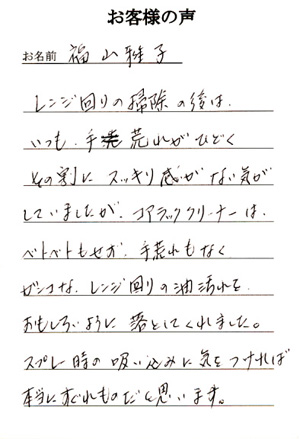 お客様の声
お名前 福山雅子
レンジ回りの掃除の後は、
いつも、手荒れがひどく
その割に スッキリ感がない気が
していましたが、コアラッククリーナーは、
ベトベトもせず、手荒れもなく
ガンコな、レンジ回りの油汚れを
おもしろいように 落としてくれました。
スプレー時の吸い込みに気をつければ
本当にすぐれものだと思います。